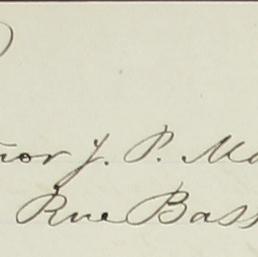 nor J. P. Ma
Rue Bass